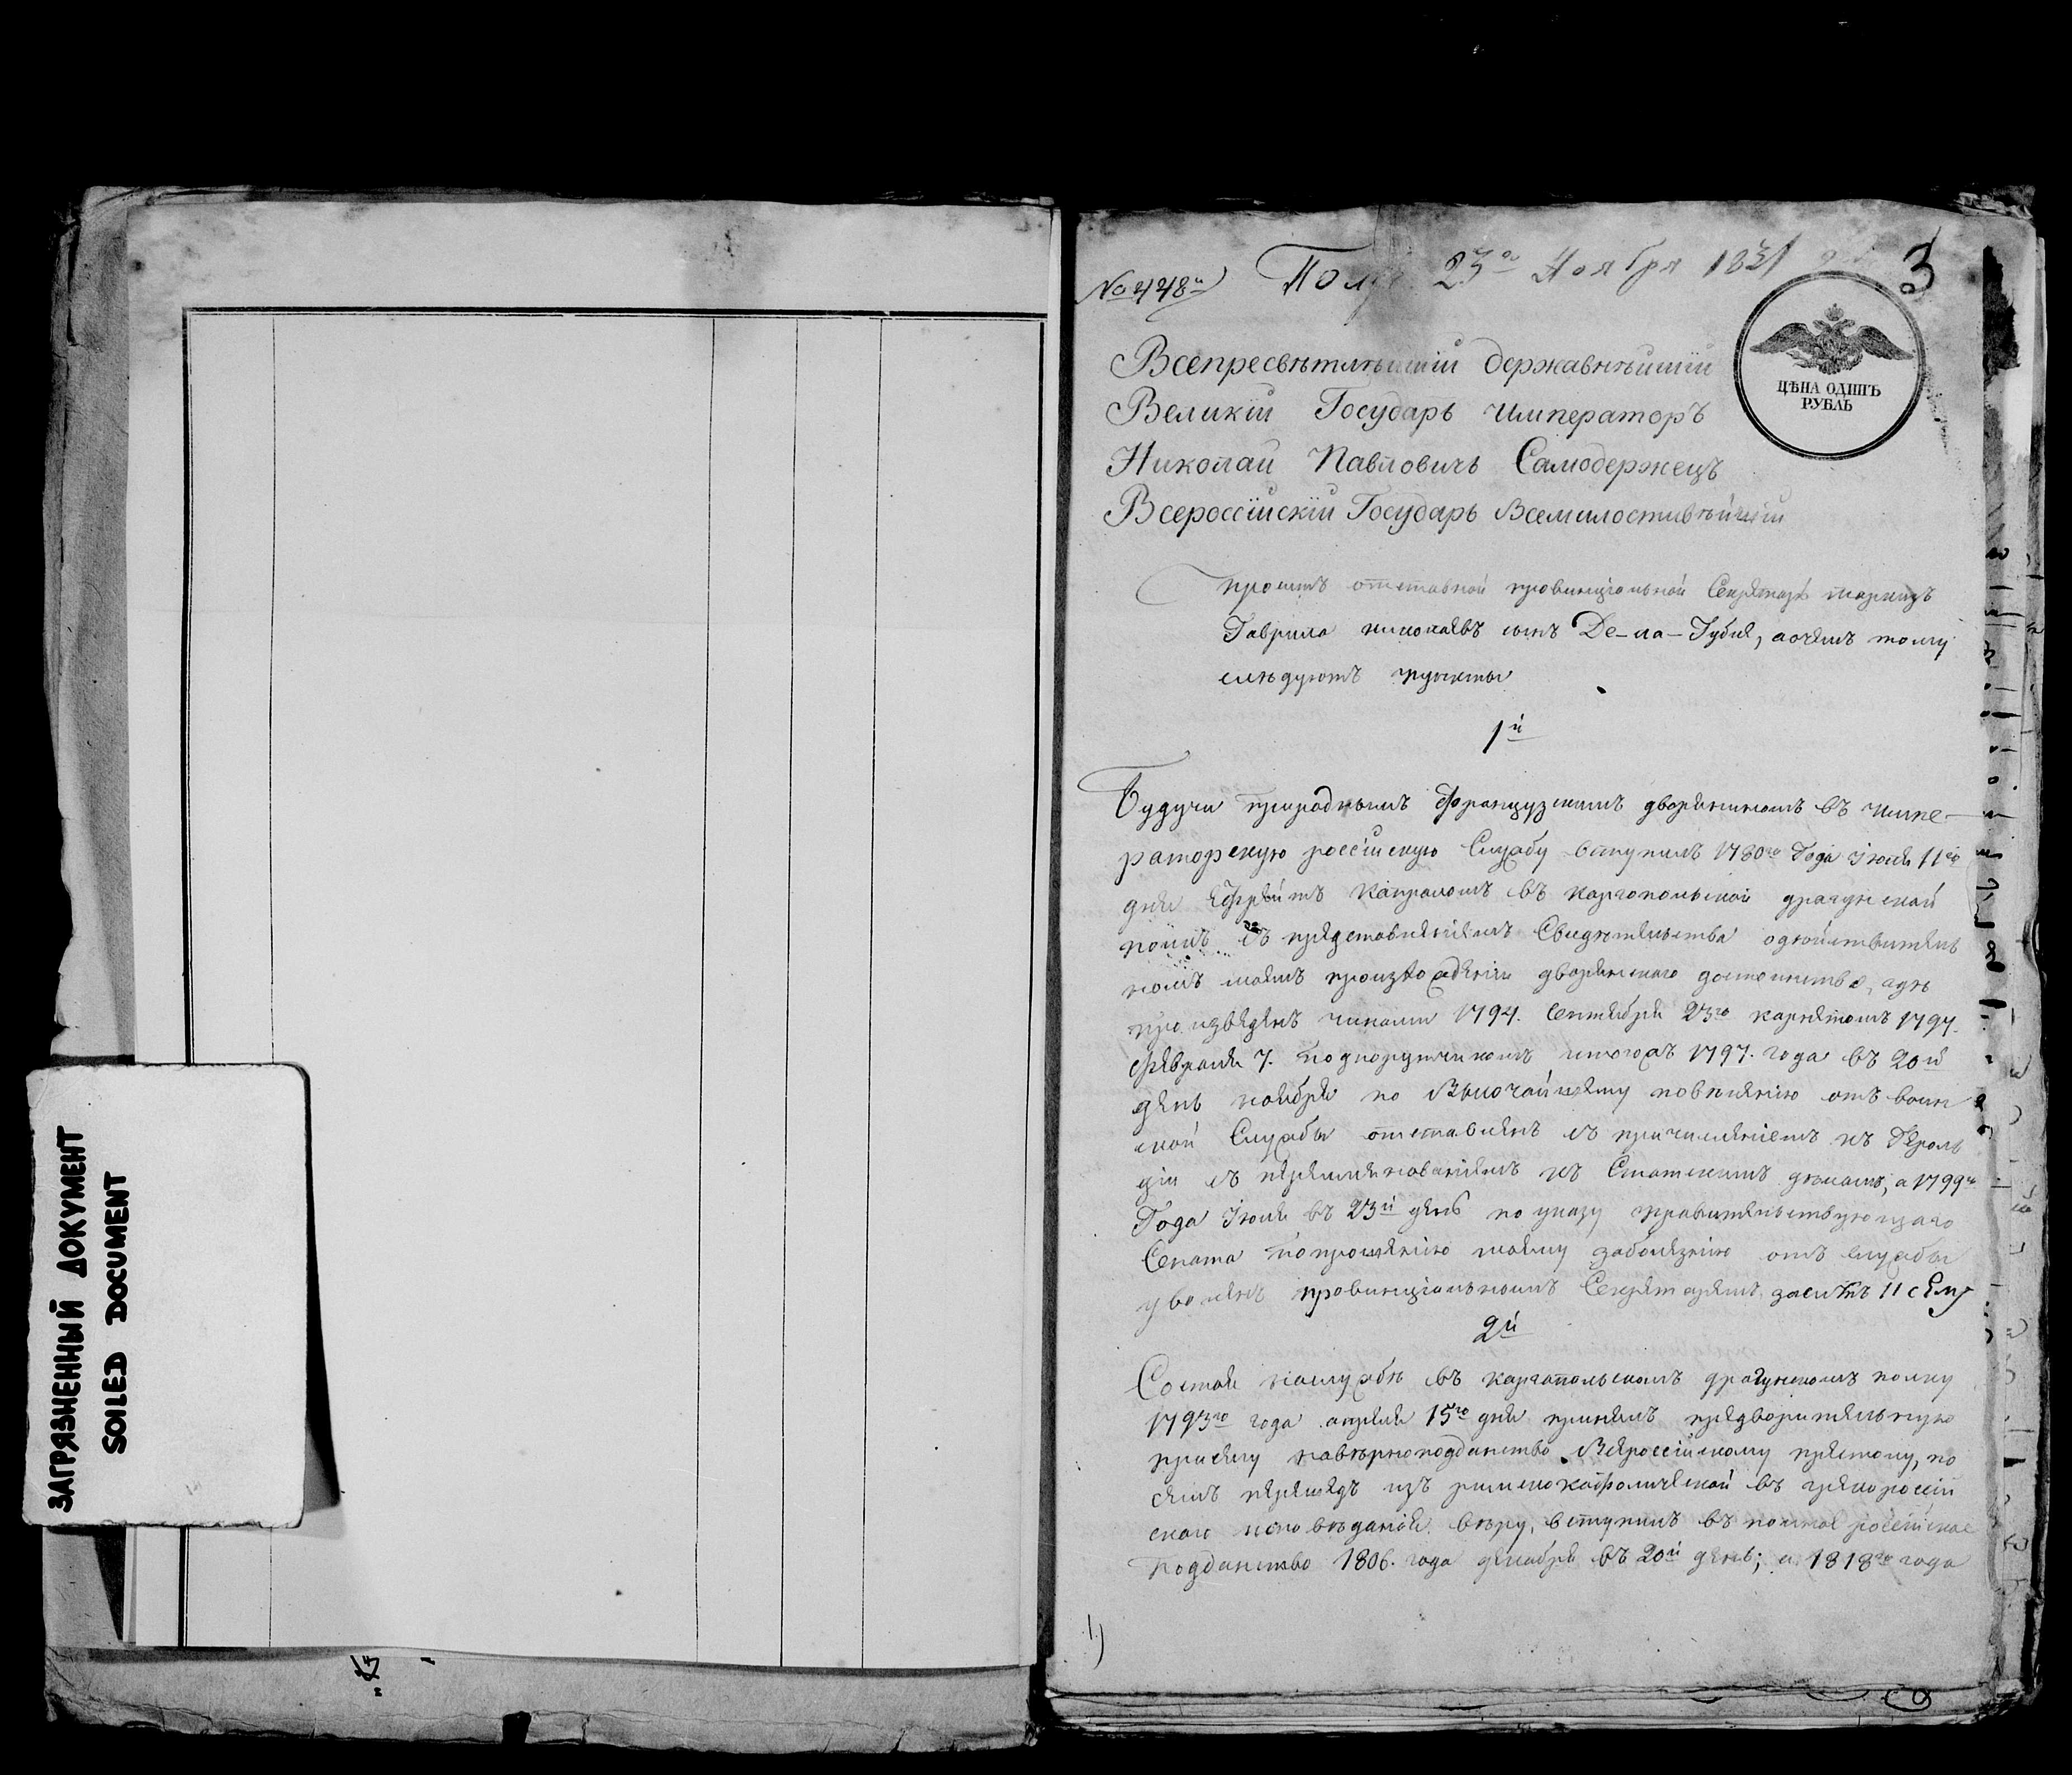 ЗАГРЯЗНЕННЫЙ ДОКУМЕНТ
SOILED DOCUMENT
23го Ноября 1831
3
ЦѢНА ОДИНЪ
РУБЛЬ
Всепресвѣтлѣйшій державнѣйшій
Великій Государь императоръ
Николай Павловичь Самодержецъ
Всероссійскій Государь Всемилостивѣйшій
проситъ отставной провинціальной Секретарь маркизъ
Гаврила николаевъ сынъ Де-ла-Губле, а очемъ тому
слѣдуютъ пункты
1й
Будучи природнымъ Французскимъ дворяниномъ въ импе-
раторскую россійскую Службу вступилъ 1780го Года Іюля 11го
дня Капраломъ въ каргопольской драгунской
полкъ съ представленіемъ Свидѣтельства одѣйствитель
номъ моемъ произхождении дворянскаго достоинства, гдѣ
произведенъ чинами 1794. Сентября 23го карнетомъ 1797.
Февраля 7. подпорутчикомъ и тогожъ 1797. года въ 20й
день ноября по Высочайшему повелѣнію отъ воин
ской Службы отставленъ съ причисленіемъ къ Героль
діи съ переименованіемъ къ Статскимъ дѣламъ, а 1799го
Года Іюля въ 23й день по указу правительствующаго
Сената попрошенію моему заболѣзнію отъ службы
уволенъ провинціальнымъ Секретаремъ
2й
Состоя наслужбѣ въ каргапольскомъ драгунскомъ полку
1793го года апреля 15го дня принялъ предворительную
присягу навѣрноподданство Всероссійскому престолу, по
семъ перешедъ изъ римскокатолической въ грекороссій
скаго исповѣданія вѣру, вступилъ въ полное россійское
подданство 1806. года декабря въ 20й день; а 1818го года
1)